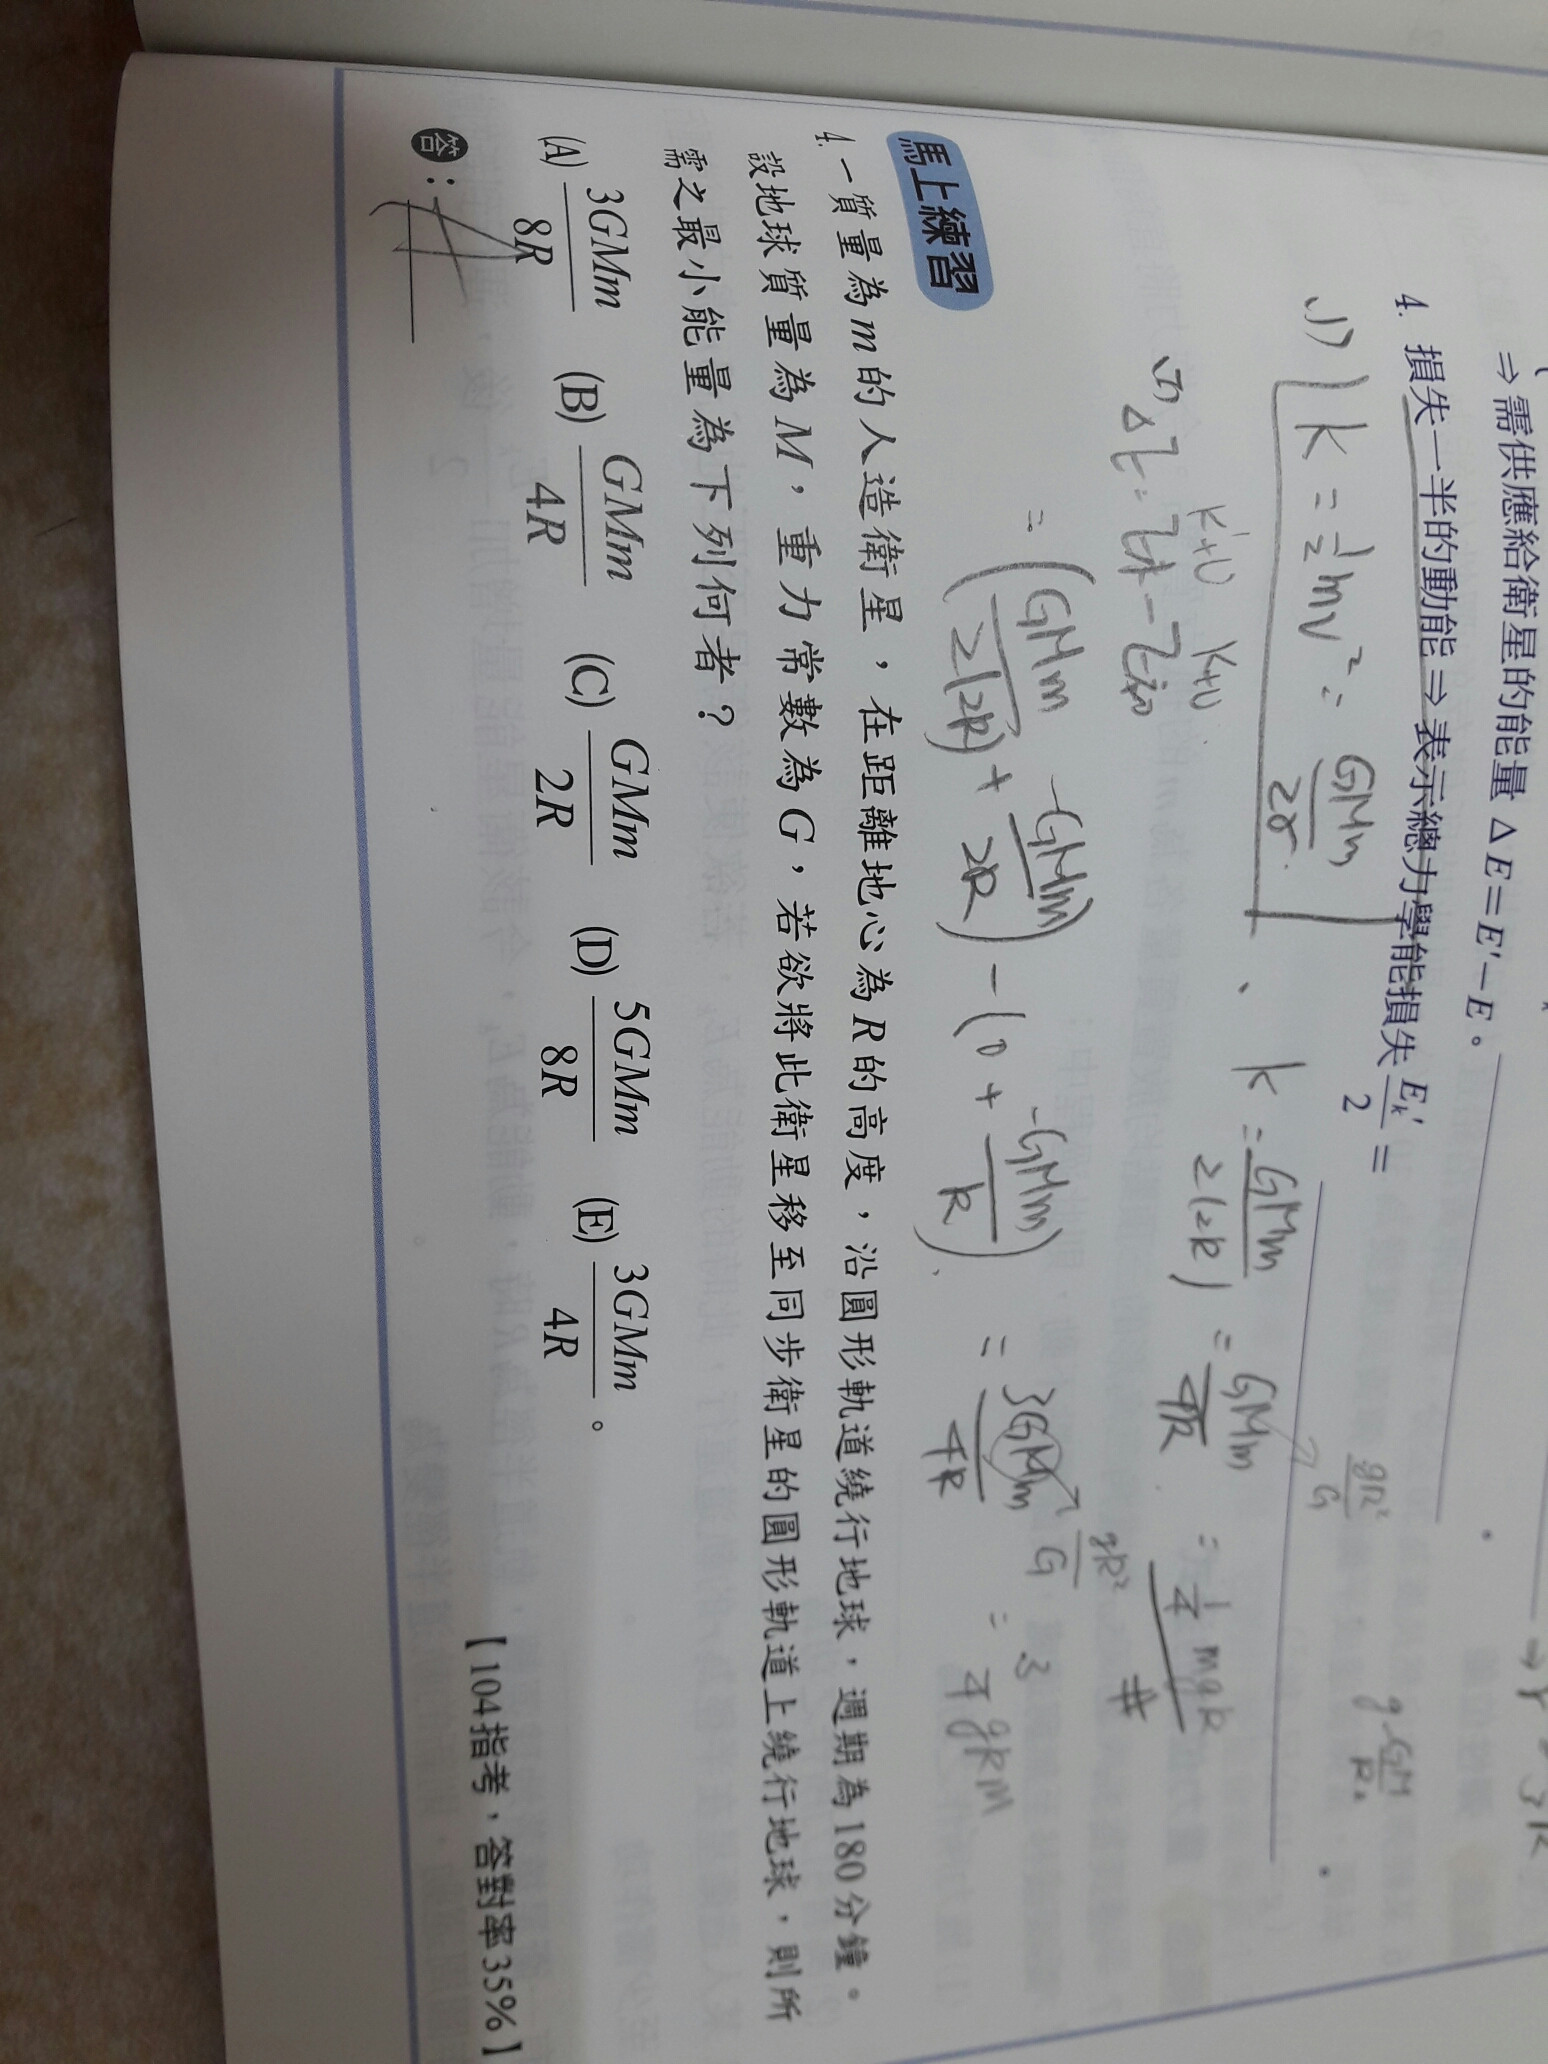 ⇒需供應給衛星的能量 ΔE=E'−E。
4. 損失一半的動能⇒表示總力學能損失 E_k'/2 =
(1) K = 1/2 mv² = GMm/2r 、 K = GMm/2(2R) = GMm/4R = 1/4 mgR #
gR²/G
g = GM/R²
K'+U K+U
ΔE = E末 − E初
= (GMm/2(2R) + −GMm/2R) − (0 + −GMm/R) = 3GMm/4R = 3/4 gRm
gR²/G
馬上練習
4. 一質量為m的人造衛星，在距離地心為R的高度，沿圓形軌道繞行地球，週期為180分鐘。
設地球質量為M，重力常數為G，若欲將此衛星移至同步衛星的圓形軌道上繞行地球，則所
需之最小能量為下列何者？
(A) 3GMm/8R (B) GMm/4R (C) GMm/2R (D) 5GMm/8R (E) 3GMm/4R。
【104指考，答對率35%】
答：A